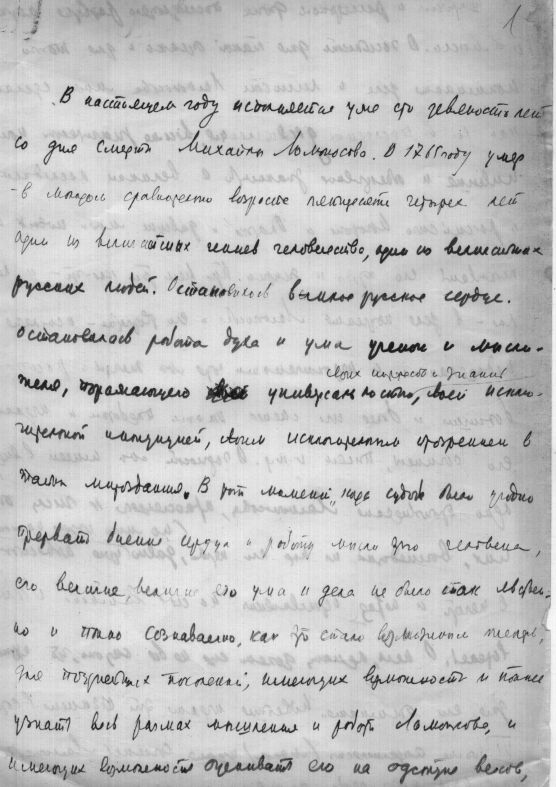 1
В настоящем году исполняется уже сто девяносто лет
со дня смерти Михайлы Ломоносова. В 1765 году умер
в молодом сравнительно возрасте пятидесяти четырех лет
один из величайших гениев человечества, один из величайших
русских людей. Остановилось великое русское сердце.
Остановилась работа духа и ума ученого и мысли-
теля, поражающего универсальностью своих интересов и знаний, своей исклю-
чительной интуицией, своим исключительным прозрением в
тайны мироздания. В тот момент, когда судьбе было угодно
прервать биение сердца и работу мысли этого человека,
его величие, величие его ума и дела не было так явствен-
но и полно сознаваемо, как это стало возможным теперь,
для позднейших поколений, имеющих возможность и полнее
узнать весь размах мышления и работы Ломоносова, и
имеющих возможность оценивать его на отступе веков,